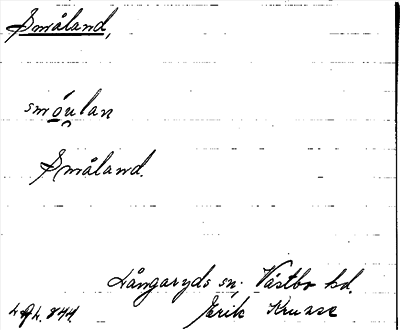 Småland,
smóulan
Småland.
Långaryds sn. Västbo hd.
Erik Kruse